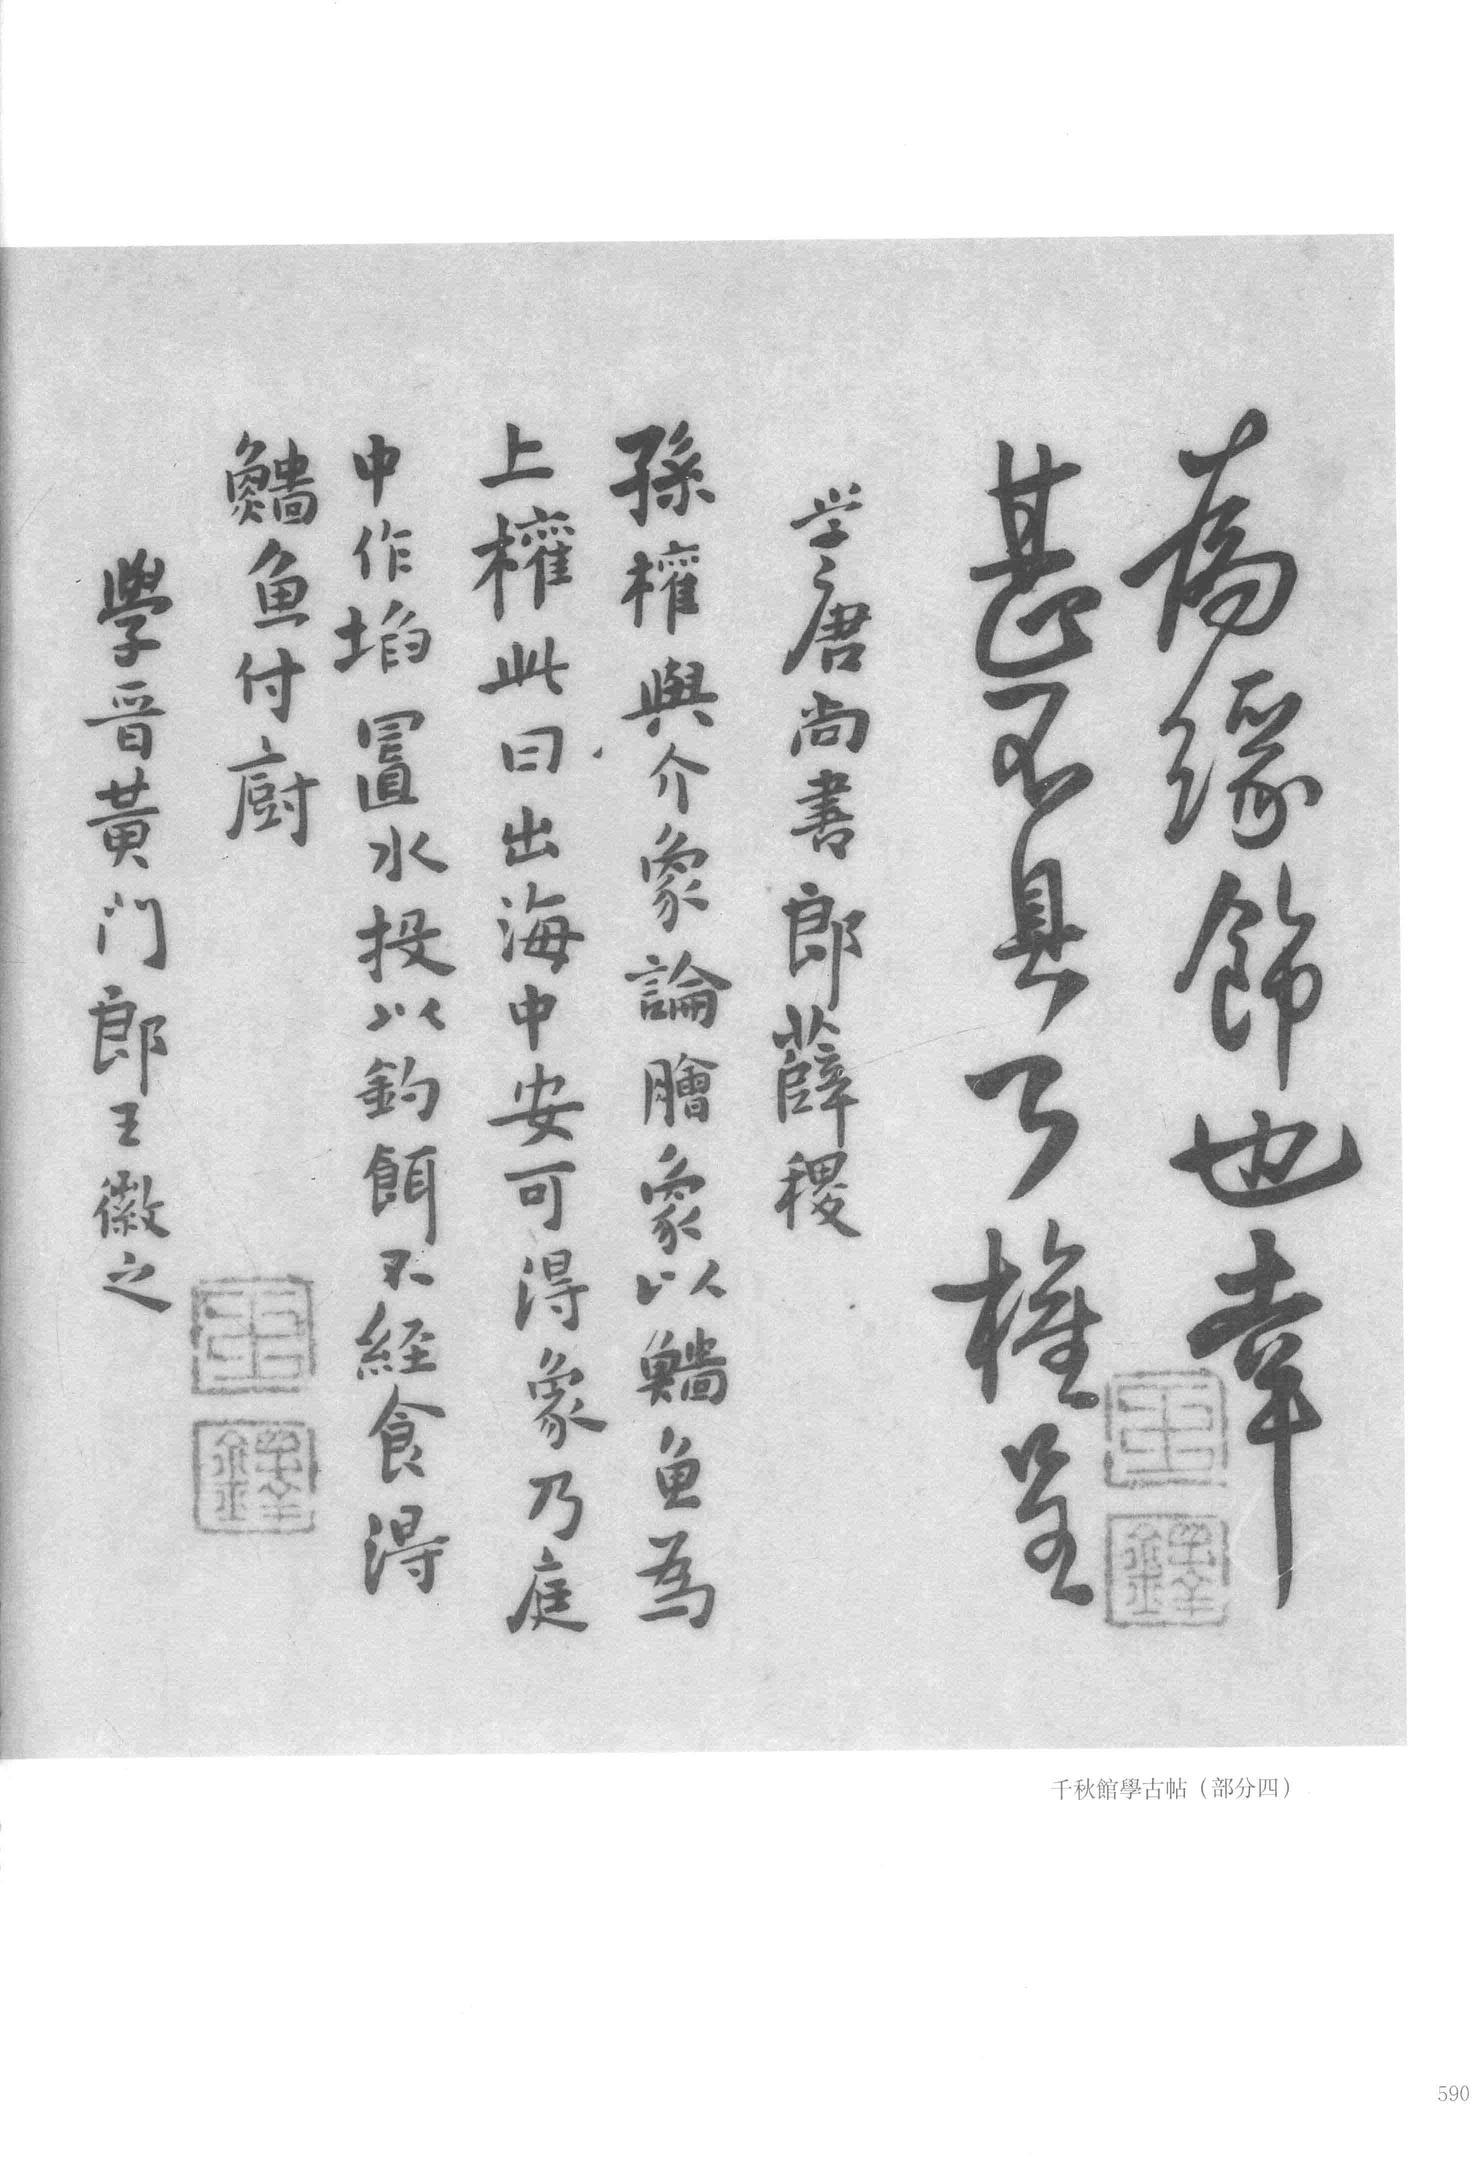 為緣飾也幸
甚不具了權呈
学唐尚書郎薛稷
孫權與介象論膾象以鱛魚為
上權此曰出海中安可得象乃庭
中作埳置水投以釣餌不經食得
鱛魚付廚
學晋黃门郎王徽之
千秋館學古帖（部分四）
590